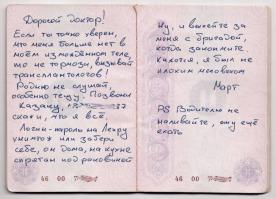 Дорогой Доктор!
Если ты точно уверен,
что меня больше нет в
моём измождённом теле,
то не тормози, вызывай
трансплантологов!
Родню не слушай,
особенно тёщу. Позвони
Казаку,
скажи, что я всё.
Логин-пароль на Лепру
уничтожь или забери
себе, он дома, на кухне
спрятан под раковиной
46 00
Ну, и выпейте за
меня с бригадой,
когда закончите.
Кажется, я был не
плохим человеком
Март
PS Водителю не
наливайте, ему ещё
ехать
46 00